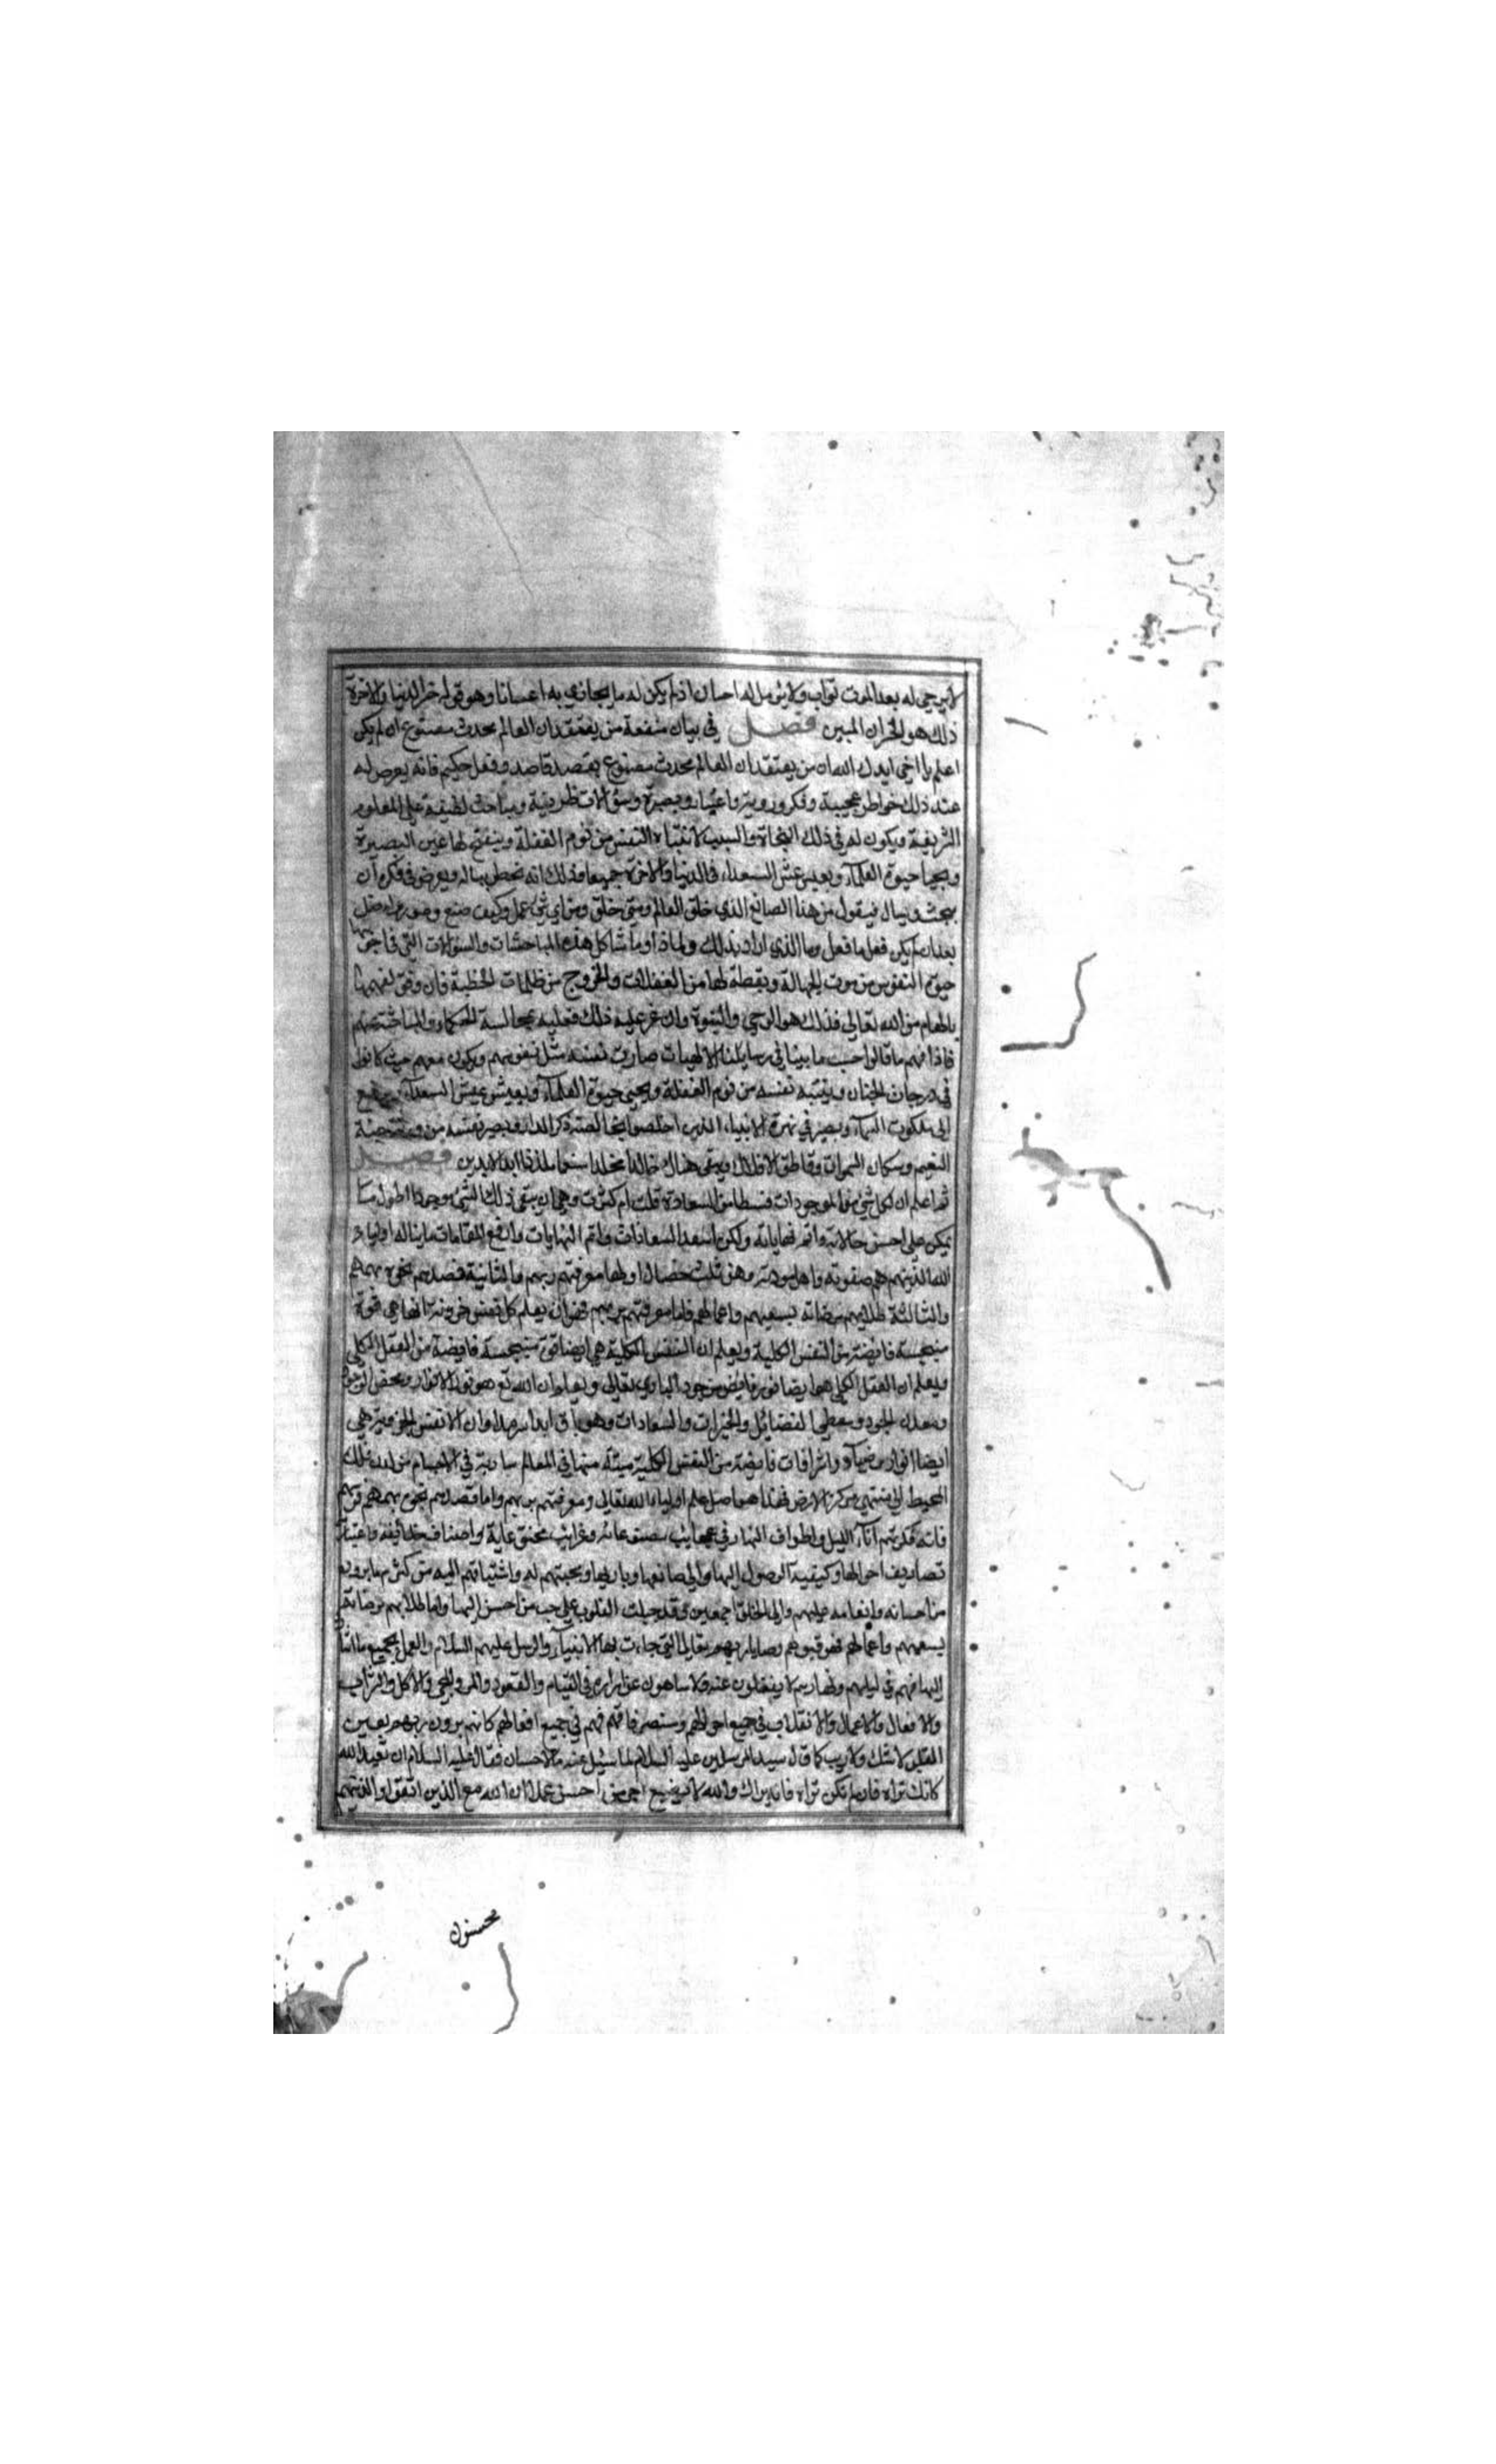 لا يرجى له بعد الموت ثواب ولا يؤمل له احسان اذ لم يكن له ما يجازي به احسانا وهو قوله خسر الدنيا والاخرة
ذلك هو الخسران المبين فصل في بيان منفعة من يعتقد ان العالم محدث مصنوع ان لم يكن
اعلم يا اخي ايدك الله ان من يعتقد ان العالم محدث مصنوع بقصد قاصد وفعل حكيم فانه يعرض له
عند ذلك خواطر عجيبة وفكر وروية واعتبار وبصيرة وسؤالات ظريفة ومباحث لطيفة على العلوم
الشريفة ويكون له في ذلك النجاة والسبب لانتباه النفس من نوم الغفلة وينفتح لها عين البصيرة
ويحيا حيوة العلماء ويعيش عيش السعداء في الدنيا والاخرة جميعا وذلك انه يخطر بباله ويعرض في فكره ان
يبحث ويسال فيقول من هذا الصانع الذي خلق العالم ومتى خلق ومن اي شئ عمل وكيف صنع وصور
بعد ان لم يكن فعل ما فعل وما الذي اراد بذلك ولماذا وما شاكل هذه المباحثات والسؤالات التي في اجوبتها
حيوة النفوس من موت الجهالة ويقظة لها من الغفلات والخروج من ظلمات الخطية فان وفق لفهمها
بالهام من الله تعالى فذلك هو الوحي والنبوة وان عز عليه ذلك فعليه بمجالسة الحكماء والمباحثة معهم
فاذا فهم ما قالوا حسب ما بينا في رسايلنا الالهيات صارت نفسه مثل نفوسهم ويكون معهم حيث كانوا
في درجات الجنان وينتبه نفسه من نوم الغفلة ويحيى حيوة العلماء ويعيش عيش السعداء
الى ملكوت السماء ويصير في زمرة الانبياء الذين اخلصوا بخالصة ذكرى الدار ويصير نفسه من ورثة جنة
النعيم وسكان السموات وقاطني الافلاك ويبقى هناك خالدا مخلدا منعما ملذذا ابد الابدين فصل
ثم اعلم ان لكل شئ من الموجودات قسطا من السعادة قلت ام كثرت وهي ان يبقى ذلك الشئ موجودا اطول ما
يمكن على احسن حالاته واتم نهاياته ولكن اسعد السعادات واتم النهايات وارفع المقامات ما يناله اولياء
الله الذين هم صفوته واهل مودته وهن ثلث خصال اولها معرفتهم ربهم والثانية قصدهم نحوه بهممهم
والثالثة طلابهم مرضاته بسعيهم واعمالهم فاما معرفتهم بربهم فهو ان يعلم كل نفس جزوية انها هي قوة
منبجسة فايضة من النفس الكلية ويعلم ان النفس الكلية هي ايضا قوة منبجسة فايضة من العقل الكلي
ويعلم ان العقل الكلي هو ايضا نور فايض من جود الباري تعالى ويعلم ان الله تع هو نور الانوار ومحض الوجود
ومعدن الجود ومعطي الفضائل والخيرات والسعادات وهو باق ابدا سرمدا وان الانفس الجزوية هي
ايضا انوار وضياء واشراقات فايضة من النفس الكلية مبثة منها في العالم سارية في الاجسام من لدن فلك
المحيط الى منتهى مركز الارض فهذا هو اصل علم اولياء الله تعالى ومعرفتهم بربهم واما قصدهم نحوه بهممهم
فانه فكرتهم اناء الليل واطراف النهار في عجايب مصنوعاته وغرايب مخترعاته واصناف خلائقه واعتبار
تصاريف احوالها وكيفية الوصول اليها والى صانعها وباريها ومحبتهم له واشتياقهم اليه من كثرة ما يرونه
من احسانه وانعامه عليهم والى الخلق اجمعين وقد جبلت القلوب على حب من احسن اليها واما طلابهم مرضاته
بسعيهم واعمالهم فهو قبولهم وصايا ربهم تعالى التي جاءت بها الانبياء والرسل عليهم السلام والعمل بجميع ما
اليها فهم في ليلهم ونهارهم لا يغفلون عنه ولا ساهون عن ابراره في القيام والقعود والاكل والشراب
والافعال والاعمال والانقلاب في جميع احوالهم ومتصرفاتهم فهم في جميع افعالهم كانهم يرون ربهم بعين
العقل لا شك ولا ريب كما قال سيد المرسلين عليه السلام لما سئل عنه ما الاحسان فقال عليه السلام ان تعبد الله
كانك تراه فان لم تكن تراه فانه يراك والله لا يضيع اجر من احسن عملا ان الله مع الذين اتقوا والذين هم
محسنون